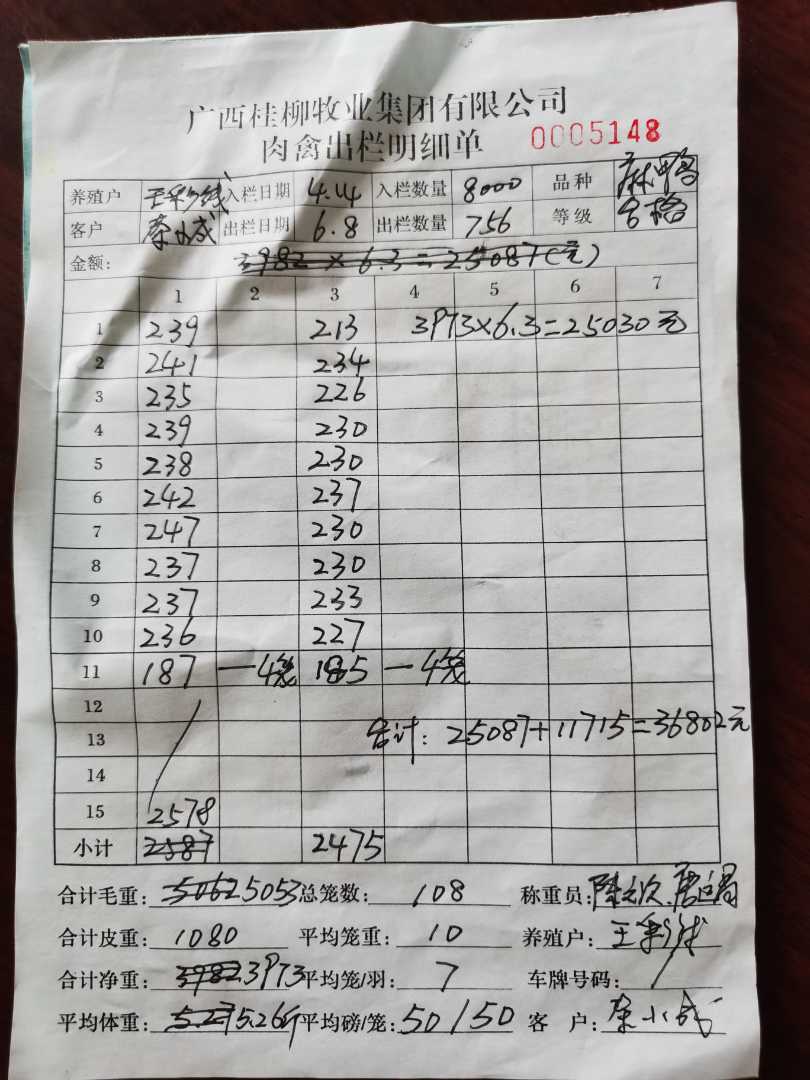 广西桂柳牧业集团有限公司
肉禽出栏明细单 0005148
养殖户 王彩线 入栏日期 4.14 入栏数量 8000 品种 麻鸭
客户 秦小成 出栏日期 6.8 出栏数量 756 等级 合格
金额: 3982×6.3=25087(元)
1 2 3 4 5 6 7
1 239 213 3973×6.3=25030元
2 241 234
3 235 226
4 239 230
5 238 230
6 242 237
7 247 230
8 237 230
9 237 233
10 236 227
11 187 一4笼 185 一4笼
12
13 合计: 25087+11715=36802元
14
15 2578
小计 2587 2475
合计毛重: 5062 5053 总笼数: 108 称重员:
合计皮重: 1080 平均笼重: 10 养殖户: 王彩线
合计净重: 3982 3973 平均笼/羽: 7 车牌号码: /
平均体重: 5.27 5.26斤 平均磅/笼: 50/50 客 户: 秦小成